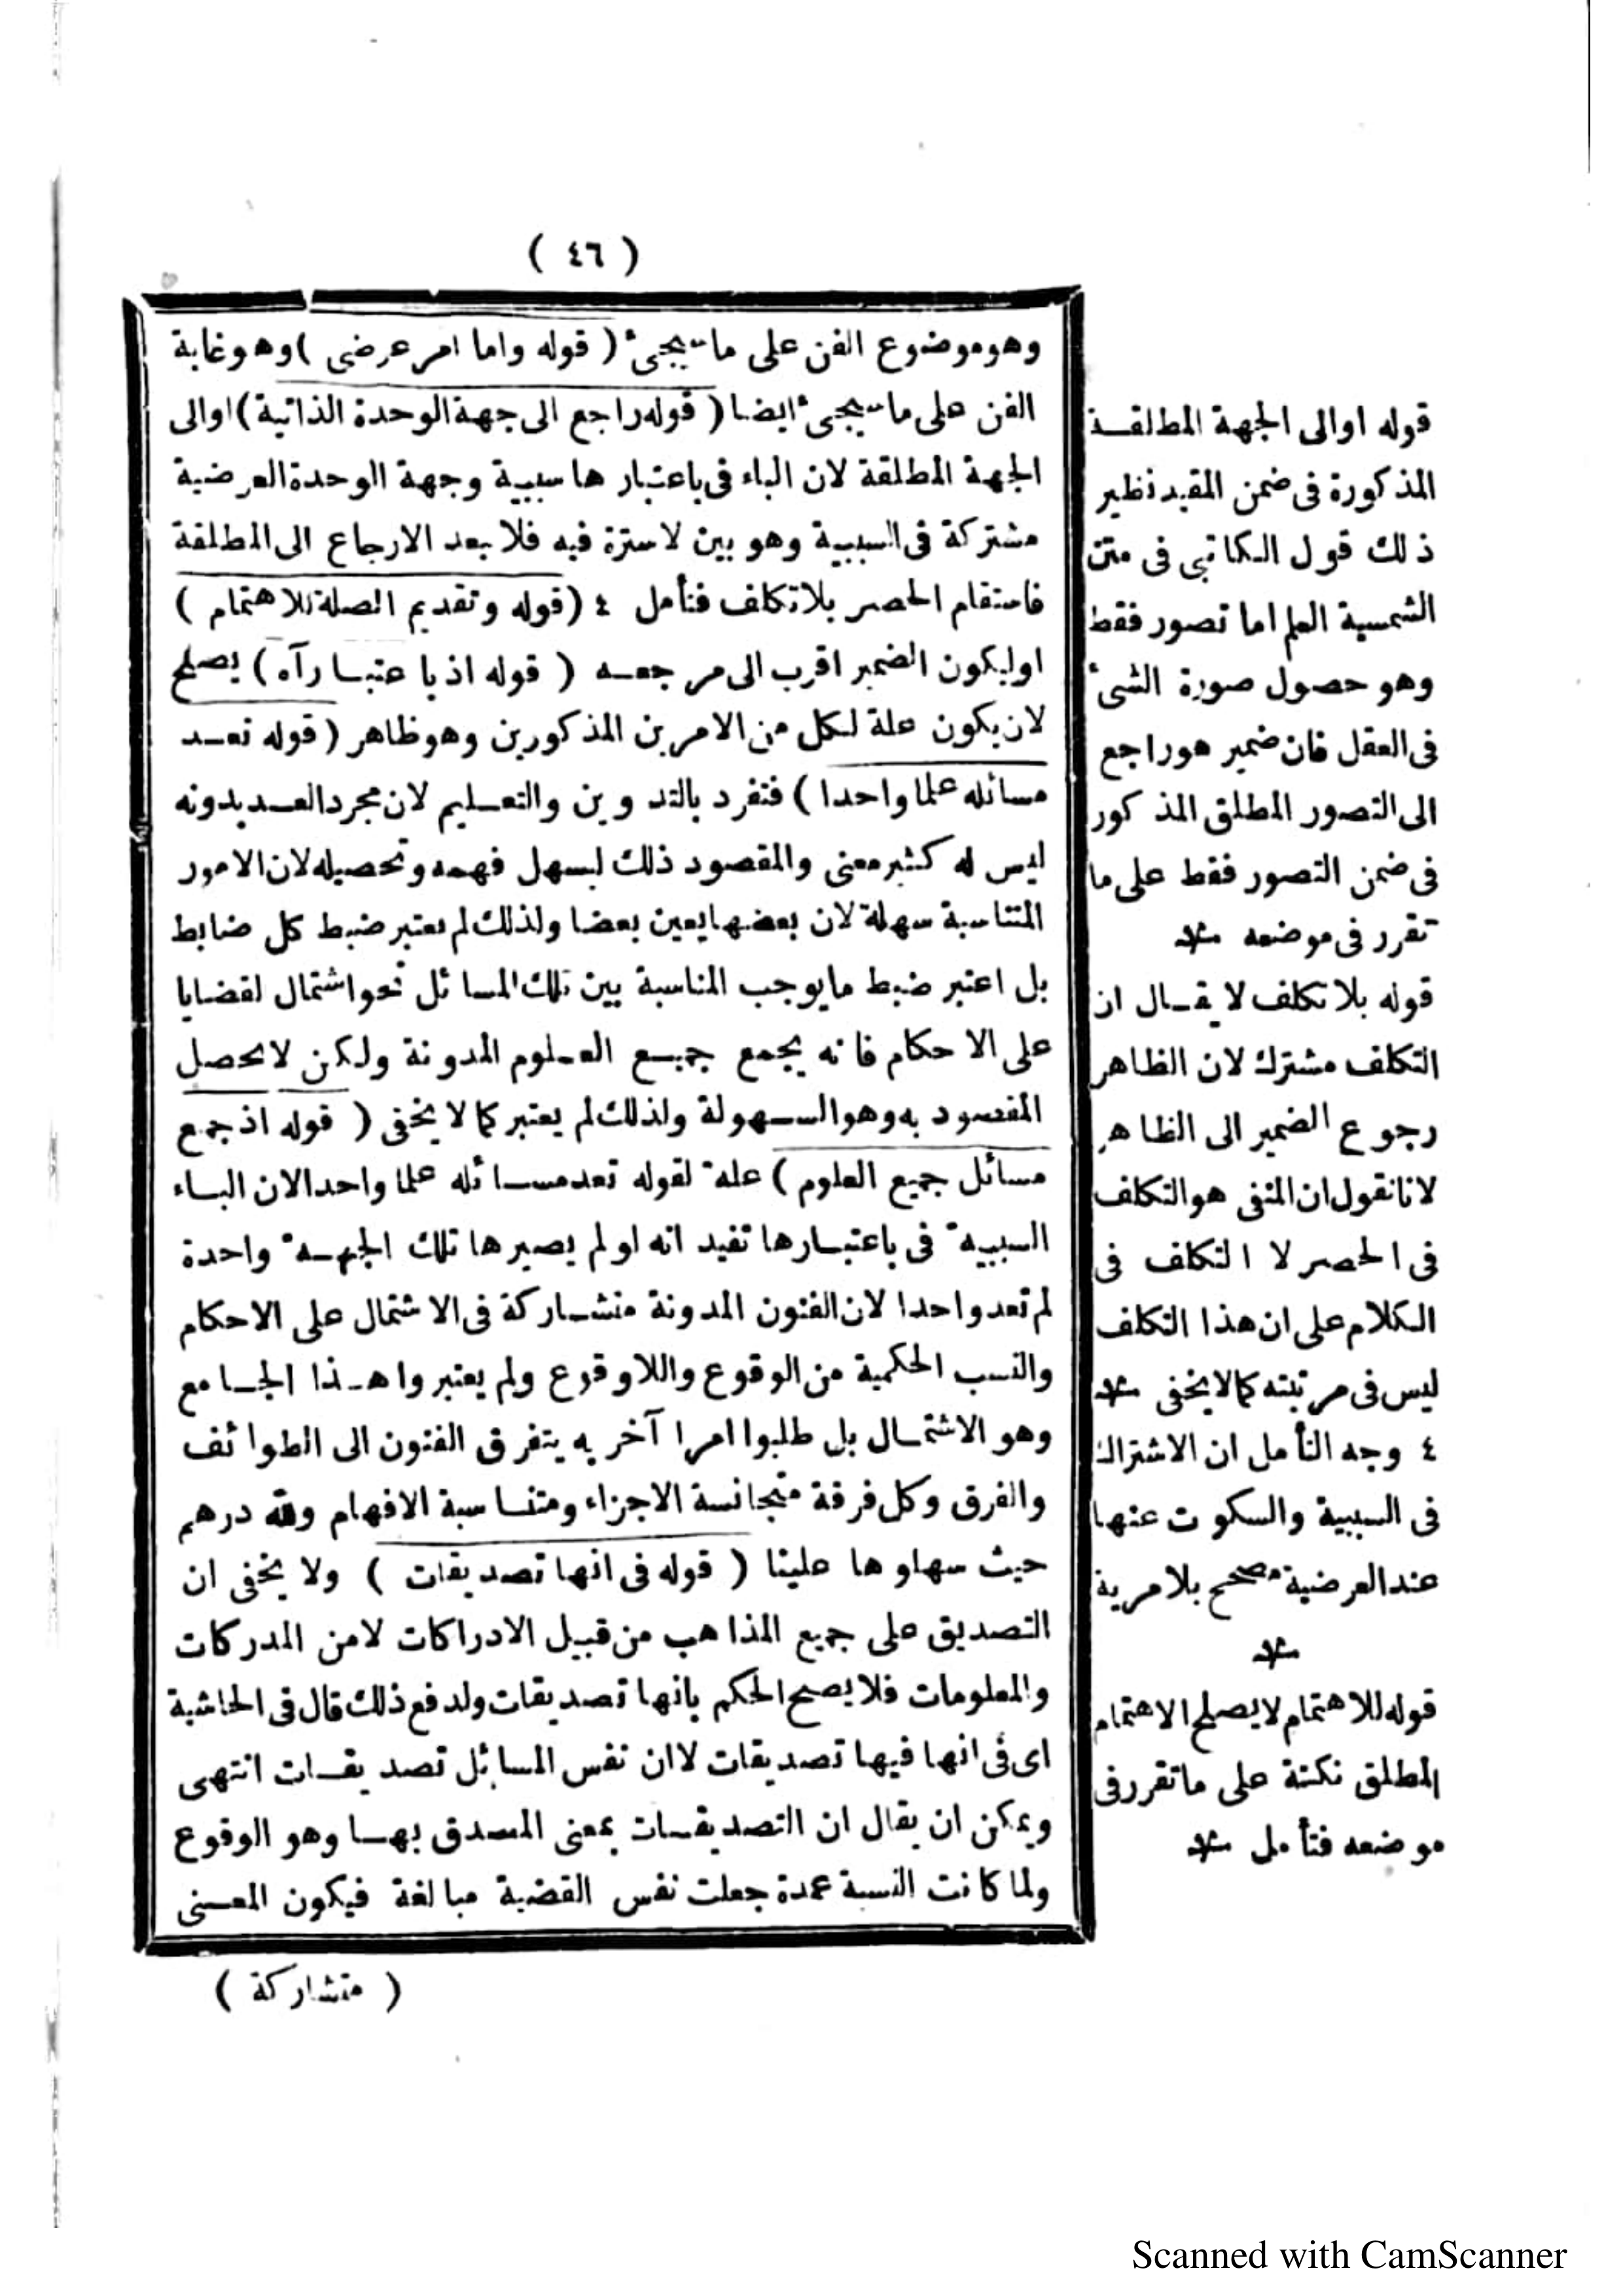 ( ٤٦ )
وهو موضوع الفن على ما سيجئ ( قوله واما امر عرضى ) وهو غاية
الفن على ما سيجئ ايضا ( قوله راجع الى جهة الوحدة الذاتية ) اوالى
الجهة المطلقة لان الباء فى باعتبار ها سببية وجهة الوحدة العرضية
مشتركة فى السببية وهو بين لا سترة فيه فلا بعد الارجاع الى المطلقة
فاستقام الحصر بلا تكلف فتأمل ٤ ( قوله وتقديم الصلة للاهتمام )
اوليكون الضمير اقرب الى مرجعه ( قوله اذ باعتبارآه ) يصلح
لان يكون علة لكل من الامرين المذكورين وهو ظاهر ( قوله تعد
مسائله علما واحدا ) فتفرد بالتدوين والتعليم لان مجرد العد بدونه
ليس له كثير معنى والمقصود ذلك ليسهل فهمه وتحصيله لان الامور
المتناسبة سهلة لان بعضها يعين بعضا ولذلك لم يعتبر ضبط كل ضابط
بل اعتبر ضبط ما يوجب المناسبة بين تلك المسائل نحو اشتمال لقضايا
على الاحكام فانه يجمع جميع العلوم المدونة ولكن لا يحصل
المقصود به وهو السهولة ولذلك لم يعتبر كما لا يخفى ( قوله اذ جميع
مسائل جميع العلوم ) علة لقوله تعد مسائله علما واحدا لان الباء
السببية فى باعتبارها تفيد انه اولم يصيرها تلك الجهة واحدة
لم تعد واحدا لان الفنون المدونة متشاركة فى الاشتمال على الاحكام
والنسب الحكمية من الوقوع واللاوقوع ولم يعتبروا هذا الجامع
وهو الاشتمال بل طلبوا امرا آخر به يتفرق الفنون الى الطوائف
والفرق وكل فرقة متجانسة الاجزاء ومتناسبة الافهام ولله درهم
حيث سهلوها علينا ( قوله فى انها تصديقات ) ولا يخفى ان
التصديق على جميع المذاهب من قبيل الادراكات لا من المدركات
والمعلومات فلا يصح الحكم بانها تصديقات ولدفع ذلك قال فى الحاشية
اى فى انها فيها تصديقات لا ان نفس المسائل تصديقات انتهى
ويمكن ان يقال ان التصديقات بمعنى المصدق بها وهو الوقوع
ولما كانت النسبة عمدة جعلت نفس القضية مبالغة فيكون المعنى
( متشاركة )
قوله اوالى الجهة المطلقة
المذكورة فى ضمن المقيد نظير
ذلك قول الكاتبى فى متن
الشمسية العلم اما تصور فقط
وهو حصول صورة الشئ
فى العقل فان ضمير هو راجع
الى التصور المطلق المذكور
فى ضمن التصور فقط على ما
تقرر فى موضعه
قوله بلا تكلف لا يقال ان
التكلف مشترك لان الظاهر
رجوع الضمير الى الظاهر
لانا نقول ان المنفى هو التكلف
فى الحصر لا التكلف فى
الكلام على ان هذا التكلف
ليس فى مرتبته كما لا يخفى
٤ وجه التأمل ان الاشتراك
فى السببية والسكوت عنها
عند العرضية مصحح بلا مرية
قوله للاهتمام لا يصلح الاهتمام
المطلق نكتة على ما تقرر فى
موضعه فتأمل
Scanned with CamScanner